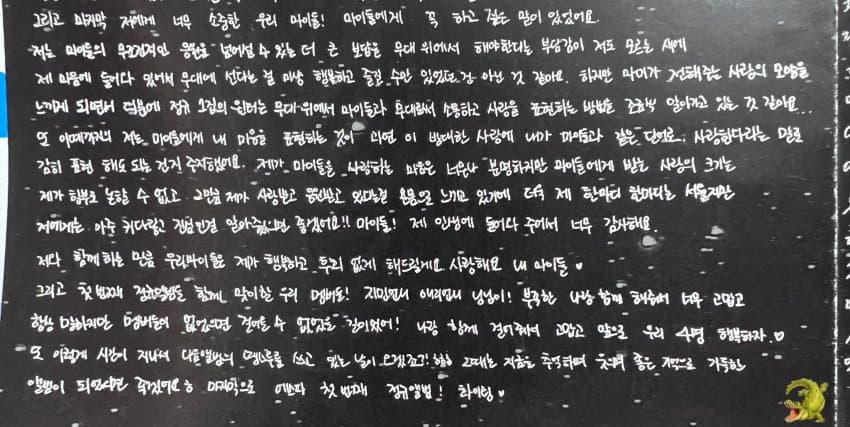 그리고 마지막 저에게 너무 소중한 우리 마이들! 마이들에게 꼭 하고 싶은 말이 있었어요.
저는 마이들의 무조건적인 응원을 넘어설 수 있는 더 큰 보답을 무대 위에서 해야한다는 부담감이 저도 모르는 새에
제 마음에 들어와 있어서 무대에 선다는 걸 마냥 행복하고 즐길 수만 있었던 건 아닌 것 같아요. 하지만 마이가 전해주는 사랑의 모양을
느끼게 되면서 덕분에 정규 1집의 윈터는 무대 위에서 마이들과 무대로서 소통하고 사랑을 표현하는 방법을 조금씩 알아가고 있는 것 같아요..
또 이제까지의 저는 마이들에게 내 마음을 표현하는 것이 과연 이 방대한 사랑에 내가 마이들과 같은 단어로, 사랑한다라는 말로
감히 표현 해도 되는 건지 주저했어요. 제가 마이들을 사랑하는 마음은 너무나 분명하지만 마이들에게 받는 사랑의 크기는
제가 함부로 논할 수 없고 그만큼 제가 사랑받고 응원받고 있다는걸 온몸으로 느끼고 있기에 더욱 제 한마디 한마디는 서툴지만
저에게는 아주 커다랗고 진심인걸 알아주셨으면 좋겠어요!! 마이들! 제 인생에 들어와 주어서 너무 감사해요.
저와 함께 하는 만큼 우리마이들은 제가 행복하고 후회 없게 해드릴게요 사랑해요 내 마이들 ♥
그리고 첫 번째 정규앨범을 함께 맞이할 우리 멤버들! 지민언니 애리언니 닝닝이! 부족한 나랑 함께 해줘서 너무 고맙고
항상 말하지만 멤버들이 없었으면 걸어올 수 없었을 길이었어! 나랑 함께 걸어줘서 고맙고 앞으로 우리 4명 행복하자 ♥
또 이렇게 시간이 지나서 다음앨범의 땡스투를 쓰고 있는 날이 오겠죠? 그때는 지금을 추억하며 웃으며 좋은 기억으로 가득한
앨범이 되었으면 좋겠어요 ㅎ 마지막으로 에스파 첫 번째 정규앨범! 화이팅 ♥